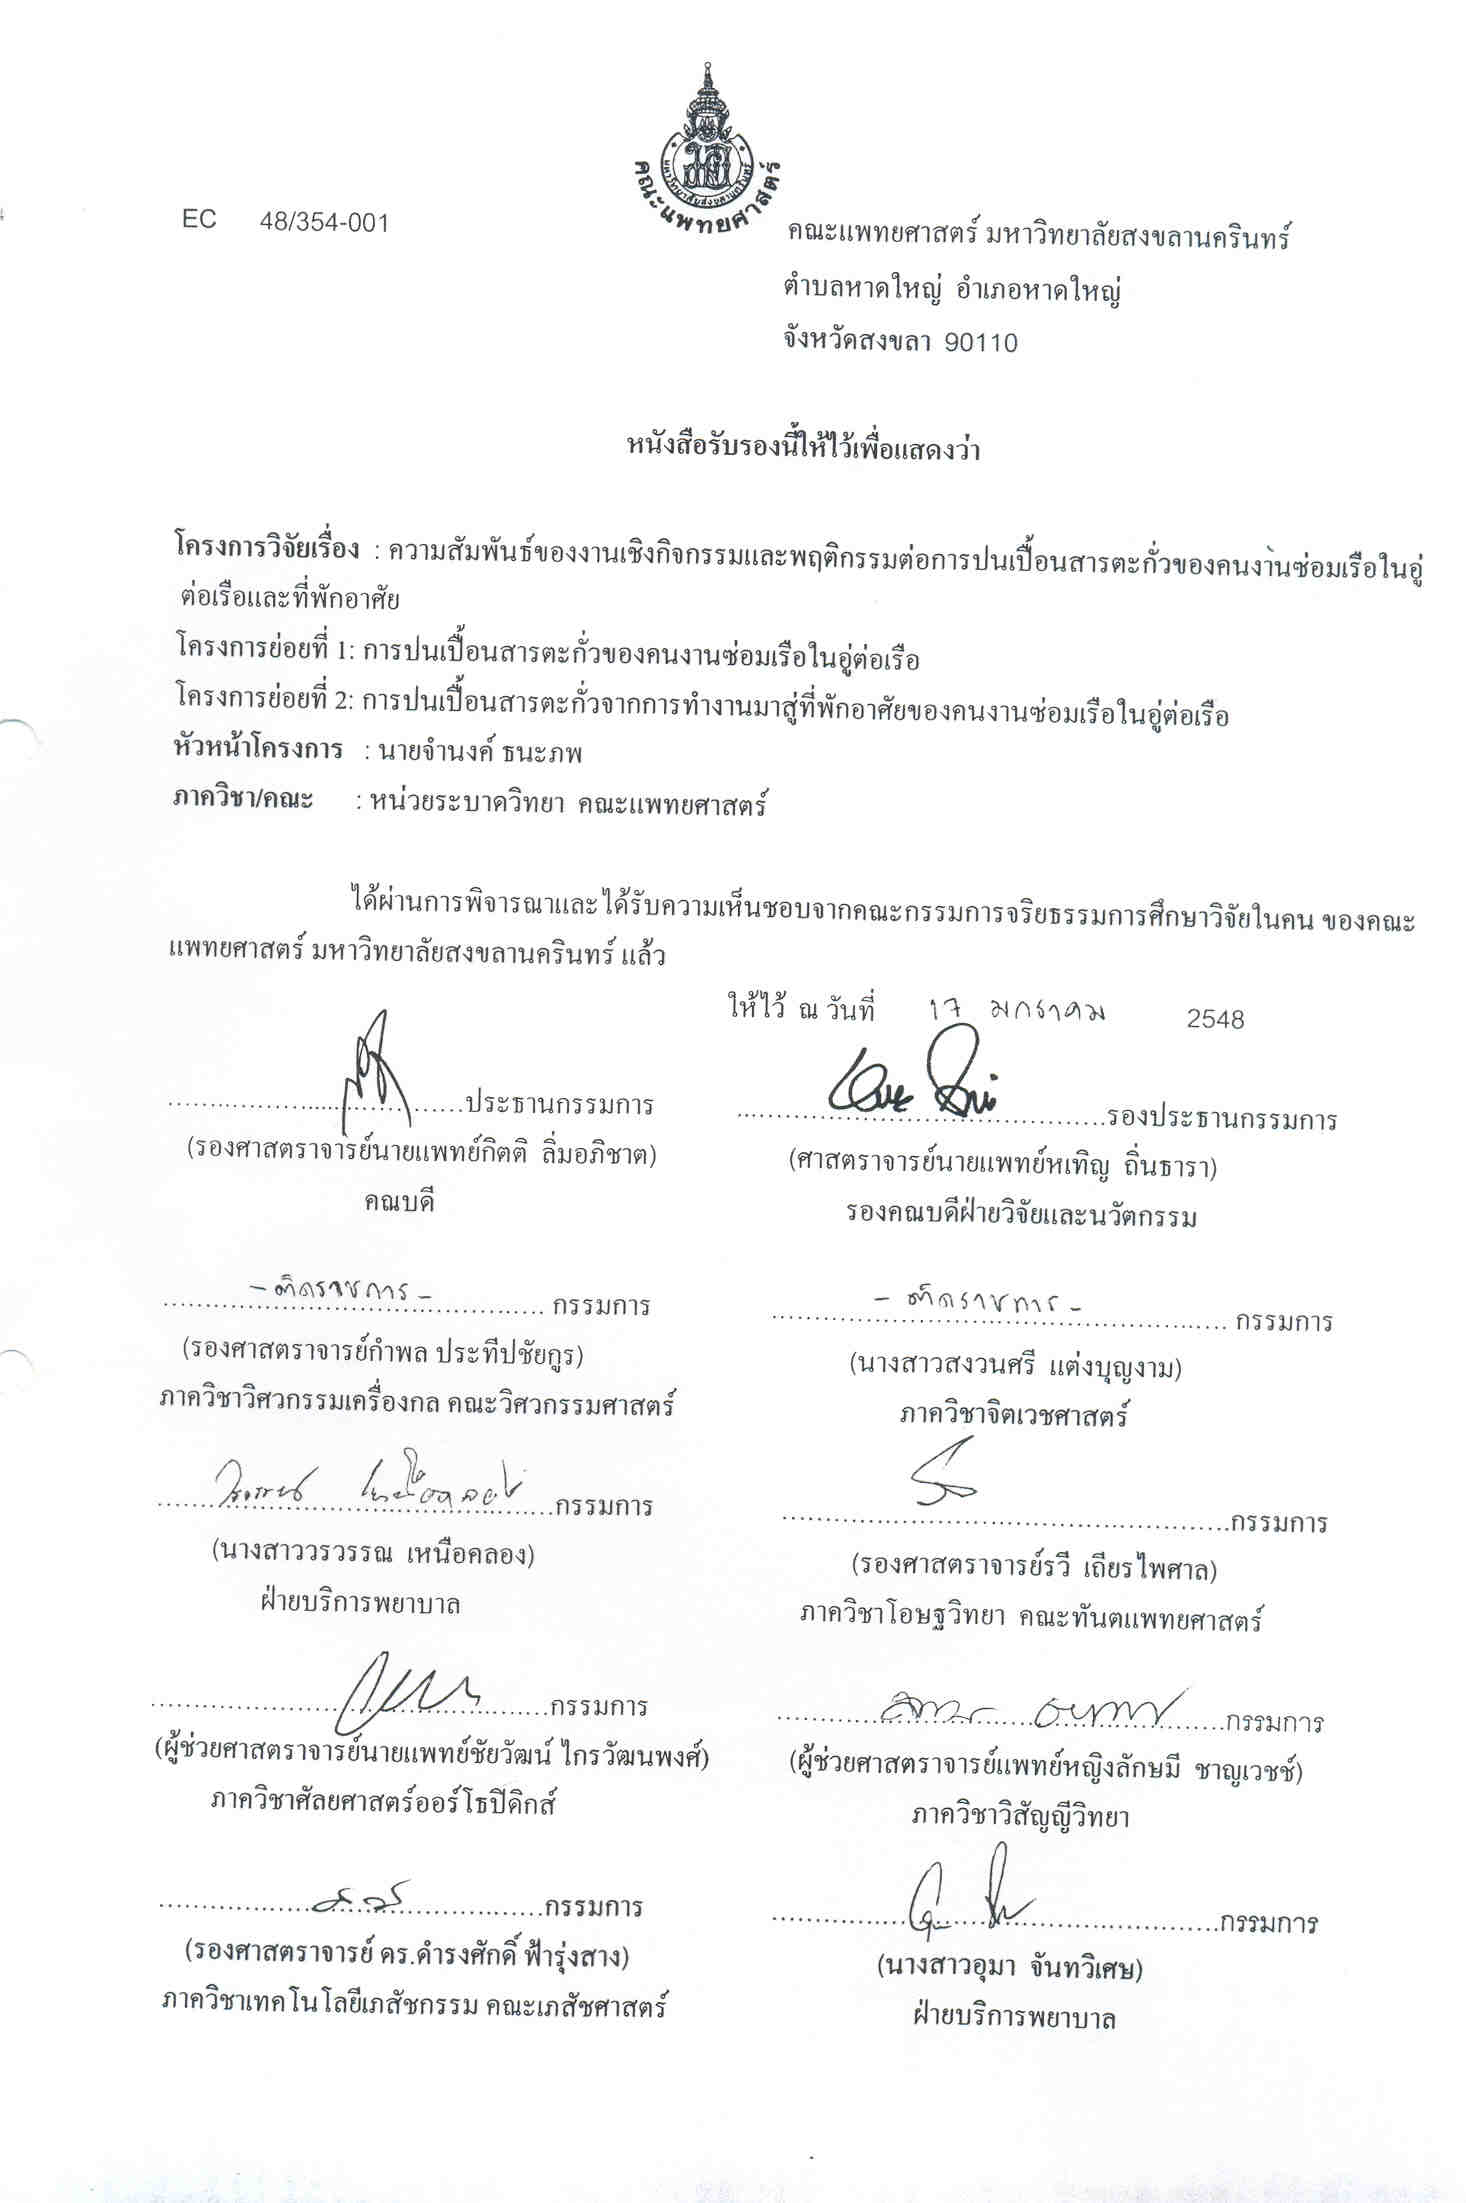 คณะแพทยศาสตร์
EC 48/354-001
คณะแพทยศาสตร์ มหาวิทยาลัยสงขลานครินทร์
ตำบลหาดใหญ่ อำเภอหาดใหญ่
จังหวัดสงขลา 90110
หนังสือรับรองนี้ให้ไว้เพื่อแสดงว่า
โครงการวิจัยเรื่อง : ความสัมพันธ์ของงานเชิงกิจกรรมและพฤติกรรมต่อการปนเปื้อนสารตะกั่วของคนงานซ่อมเรือในอู่
ต่อเรือและที่พักอาศัย
โครงการย่อยที่ 1: การปนเปื้อนสารตะกั่วของคนงานซ่อมเรือในอู่ต่อเรือ
โครงการย่อยที่ 2: การปนเปื้อนสารตะกั่วจากการทำงานมาสู่ที่พักอาศัยของคนงานซ่อมเรือในอู่ต่อเรือ
หัวหน้าโครงการ : นายจำนงค์ ธนะภพ
ภาควิชา/คณะ : หน่วยระบาดวิทยา คณะแพทยศาสตร์
ได้ผ่านการพิจารณาและได้รับความเห็นชอบจากคณะกรรมการจริยธรรมการศึกษาวิจัยในคน ของคณะ
แพทยศาสตร์ มหาวิทยาลัยสงขลานครินทร์ แล้ว
ให้ไว้ ณ วันที่ 17 มกราคม 2548
ประธานกรรมการ รองประธานกรรมการ
(รองศาสตราจารย์นายแพทย์กิตติ ลิ่มอภิชาต) (ศาสตราจารย์นายแพทย์หเทิญ ถิ่นธารา)
คณบดี รองคณบดีฝ่ายวิจัยและนวัตกรรม
- ติดราชการ - กรรมการ - ติดราชการ - กรรมการ
(รองศาสตราจารย์กำพล ประทีปชัยกูร) (นางสาวสงวนศรี แต่งบุญงาม)
ภาควิชาวิศวกรรมเครื่องกล คณะวิศวกรรมศาสตร์ ภาควิชาจิตเวชศาสตร์
วรวรรณ เหนือคลอง กรรมการ กรรมการ
(นางสาววรวรรณ เหนือคลอง) (รองศาสตราจารย์รวี เถียรไพศาล)
ฝ่ายบริการพยาบาล ภาควิชาโอษฐวิทยา คณะทันตแพทยศาสตร์
กรรมการ กรรมการ
(ผู้ช่วยศาสตราจารย์นายแพทย์ชัยวัฒน์ ไกรวัฒนพงศ์) (ผู้ช่วยศาสตราจารย์แพทย์หญิงลักษมี ชาญเวชช์)
ภาควิชาศัลยศาสตร์ออร์โธปิดิกส์ ภาควิชาวิสัญญีวิทยา
กรรมการ กรรมการ
(รองศาสตราจารย์ ดร.ดำรงศักดิ์ ฟ้ารุ่งสาง) (นางสาวอุมา จันทวิเศษ)
ภาควิชาเทคโนโลยีเภสัชกรรม คณะเภสัชศาสตร์ ฝ่ายบริการพยาบาล